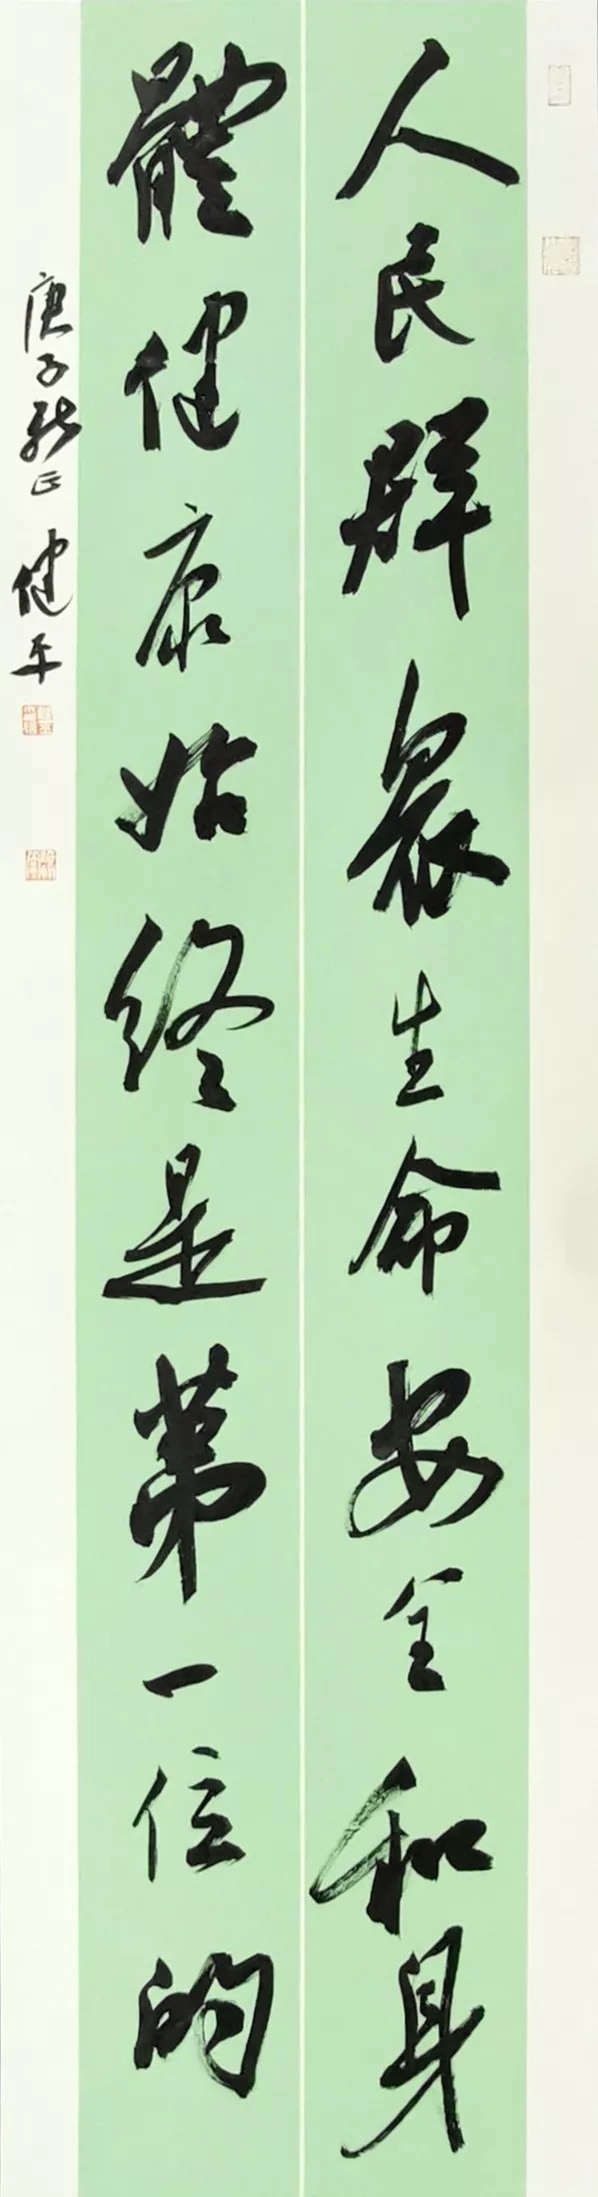 人民群衆生命安全和身
體健康始終是第一位的
庚子新正 健平